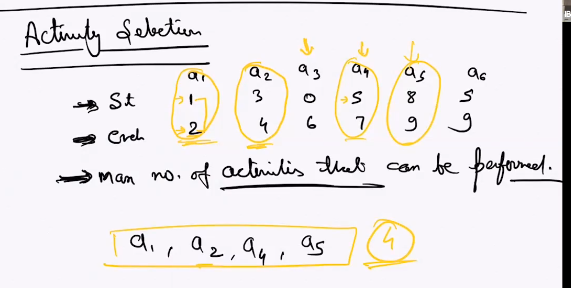 Activity Selection
a1 a2 a3 a4 a5 a6
St 1 3 0 5 8 5
End 2 4 6 7 9 9
Max no. of activities that can be performed.
a1, a2, a4, a5 4